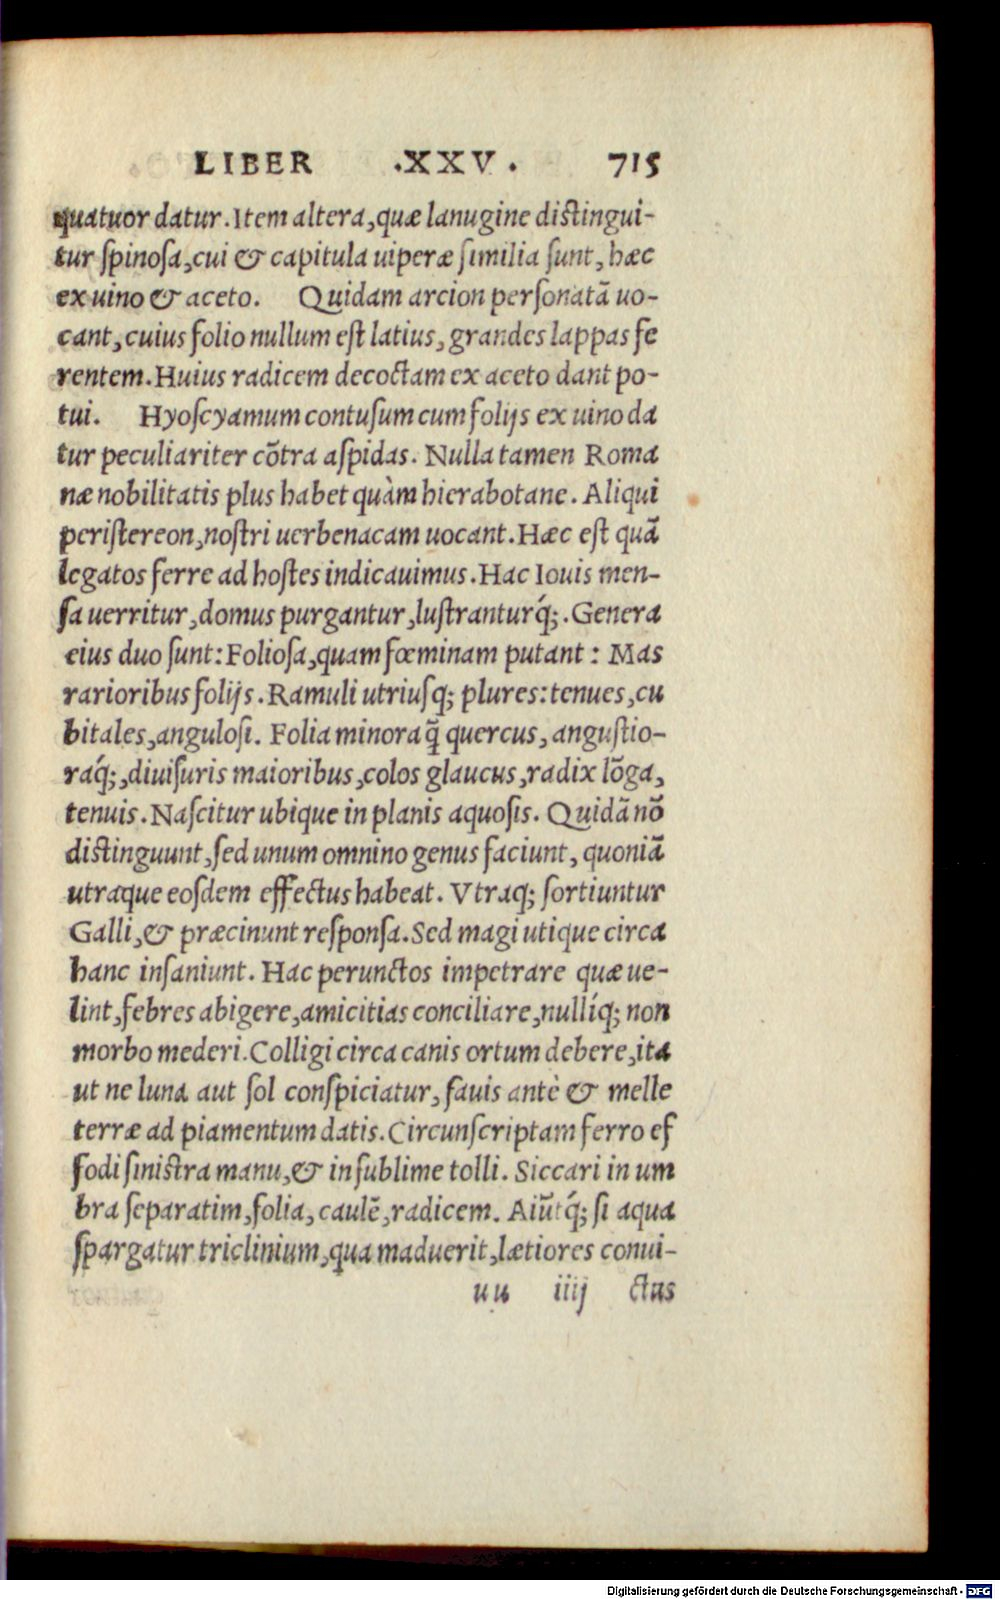 LIBER .XXV. 715
quatuor datur. Item altera, quæ lanugine distingui-
tur spinosa, cui & capitula uiperæ similia sunt, hæc
ex uino & aceto. Quidam arcion personatã uo-
cant, cuius folio nullum est latius, grandes lappas fe
rentem. Huius radicem decoctam ex aceto dant po-
tui. Hyoscyamum contusum cum folijs ex uino da
tur peculiariter cõtra aspidas. Nulla tamen Roma
næ nobilitatis plus habet quàm hierabotane. Aliqui
peristereon, nostri uerbenacam uocant. Hæc est quã
legatos ferre ad hostes indicauimus. Hac Iouis men-
sa uerritur, domus purgantur, lustranturq́;. Genera
eius duo sunt: Foliosa, quam fœminam putant: Mas
rarioribus folijs. Ramuli utriusq; plures: tenues, cu
bitales, angulosi. Folia minora q̃ quercus, angustio-
raq́;, diuisuris maioribus, colos glaucus, radix lõga,
tenuis. Nascitur ubique in planis aquosis. Quidã nõ
distinguunt, sed unum omnino genus faciunt, quoniã
utraque eosdem effectus habeat. Vtraq; sortiuntur
Galli, & præcinunt responsa. Sed magi utique circa
hanc insaniunt. Hac perunctos impetrare quæ ue-
lint, febres abigere, amicitias conciliare, nullíq; non
morbo mederi. Colligi circa canis ortum debere, ita
ut ne luna aut sol conspiciatur, fauis antè & melle
terræ ad piamentum datis. Circunscriptam ferro ef
fodi sinistra manu, & in sublime tolli. Siccari in um
bra separatim, folia, caulẽ, radicem. Aiũtq́; si aqua
spargatur triclinium, qua maduerit, lætiores conui-
uu iiij ctus
Digitalisierung gefördert durch die Deutsche Forschungsgemeinschaft - DFG